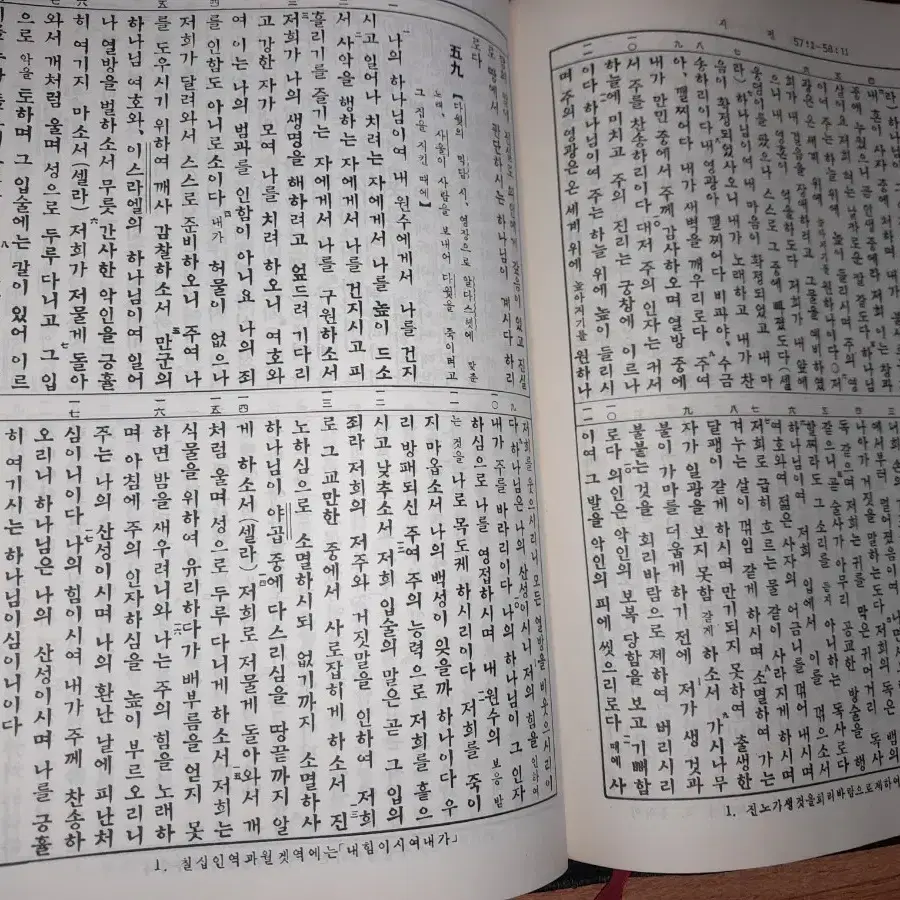 시 편 57:12-58:11
중에 누웠으니 곧 인생 중에라 저희 이는 창과
살이요 저희 혀는 날카로운 칼 같도다 하나님
이여 주는 하늘 위에 높이 들리시며 주의 영
광은 온 세계 위에 높아지기를 원하나이다 저
희가 내 걸음을 장애하려고 그물을 예비하였
으니 내 영혼이 억울하도다 저희가 내 앞에
웅덩이를 팠으나 스스로 그 중에 빠졌도다(셀
라) 하나님이여 내 마음이 확정되었고 내 마
음이 확정되었사오니 내가 노래하고 내가 찬
송하리이다 내 영광아 깰찌어다 비파야, 수금
아, 깰찌어다 내가 새벽을 깨우리로다 주여
내가 만민 중에서 주께 감사하오며 열방 중에
서 주를 찬송하리이다 대저 주의 인자는 커서
하늘에 미치고 주의 진리는 궁창에 이르나
이다 하나님이여 주는 하늘 위에 높이 들리시
며 주의 영광은 온 세계 위에 높아지기를 원하나
에서부터 멀어졌음이여
나아가 거짓을 말하는도다 저희의 독은 뱀의
독 같으며 저희는 귀를 막은 귀머거리 독사
같으니 곧 술사가 아무리 공교한 방술을 행
할찌라도 그 소리를 듣지 아니하는 독사로다
하나님이여 저희 입에서 이를 꺾으소서
여호와여 젊은 사자의 어금니를 꺾어 내시며
저희로 급히 흐르는 물 같이 사라지게 하시며
겨누는 살이 꺾임 같게 하시며 소멸하여 가는
달팽이 같게 하시며 만기되지 못하여 출생한
자가 일광을 보지 못함 같게 하소서 가시나무
불이 가마를 더웁게 하기 전에 저가 생 것과
불붙는 것을 회리바람으로 제하여 버리시리
로다 의인은 악인의 보복 당함을 보고 기뻐함
이여 그 발을 악인의 피에 씻으리로다 때에 사
1. 진노가생것을회리바람으로제하여
로 땅에서 판단하시는 하나님이 계시다 하리
로다
五九 【다윗의 믹담 시, 영장으로 알다스헷에 맞춘
노래, 사울이 사람을 보내어 다윗을 죽이려고
그 집을 지킨 때에】
나의 하나님이여 내 원수에게서 나를 건지
시고 일어나 치려는 자에게서 나를 높이 드소
서 사악을 행하는 자에게서 나를 건지시고 피
흘리기를 즐기는 자에게서 나를 구원하소서
저희가 나의 생명을 해하려고 엎드려 기다리
고 강한 자가 모여 나를 치려 하오니 여호와
여 이는 나의 범과를 인함이 아니요 나의 죄
를 인함도 아니로소이다 내가 허물이 없으나
저희가 달려와서 스스로 준비하오니 주여 나
를 도우시기 위하여 깨사 감찰하소서 만군의
하나님 여호와, 이스라엘의 하나님이여 일어
나 열방을 벌하소서 무릇 간사한 악인을 긍휼
히 여기지 마소서(셀라) 저희가 저물게 돌아
와서 개처럼 울며 성으로 두루 다니고 그 입
으로 악을 토하며 그 입술에는 칼이 있어 이르
저희를 웃으시리니 모든 열방을 비웃으시리이
다 하나님은 나의 산성이시니 저의 힘을 인하여
내가 주를 바라리이다 나의 하나님이 그 인자
하심으로 나를 영접하시며 내 원수의 보응 받
는 것을 나로 목도케 하시리이다 저희를 죽이
지 마옵소서 나의 백성이 잊을까 하나이다 우
리 방패되신 주여 주의 능력으로 저희를 흩으
시고 낮추소서 저희 입술의 말은 곧 그 입의
죄라 저희의 저주와 거짓말을 인하여 저희
로 그 교만한 중에서 사로잡히게 하소서 진
노하심으로 소멸하시되 없기까지 소멸하사
하나님이 야곱 중에 다스리심을 땅끝까지 알
게 하소서(셀라) 저희로 저물게 돌아와서 개
처럼 울며 성으로 두루 다니게 하소서 저희는
식물을 위하여 유리하다가 배부름을 얻지 못
하면 밤을 새우려니와 나는 주의 힘을 노래하
며 아침에 주의 인자하심을 높이 부르오리니
주는 나의 산성이시며 나의 환난 날에 피난처
심이니이다 나의 힘이시여 내가 주께 찬송하
오리니 하나님은 나의 산성이시며 나를 긍휼
히 여기시는 하나님이심이니이다
1. 칠십인역과월겟역에는「내힘이시여내가」